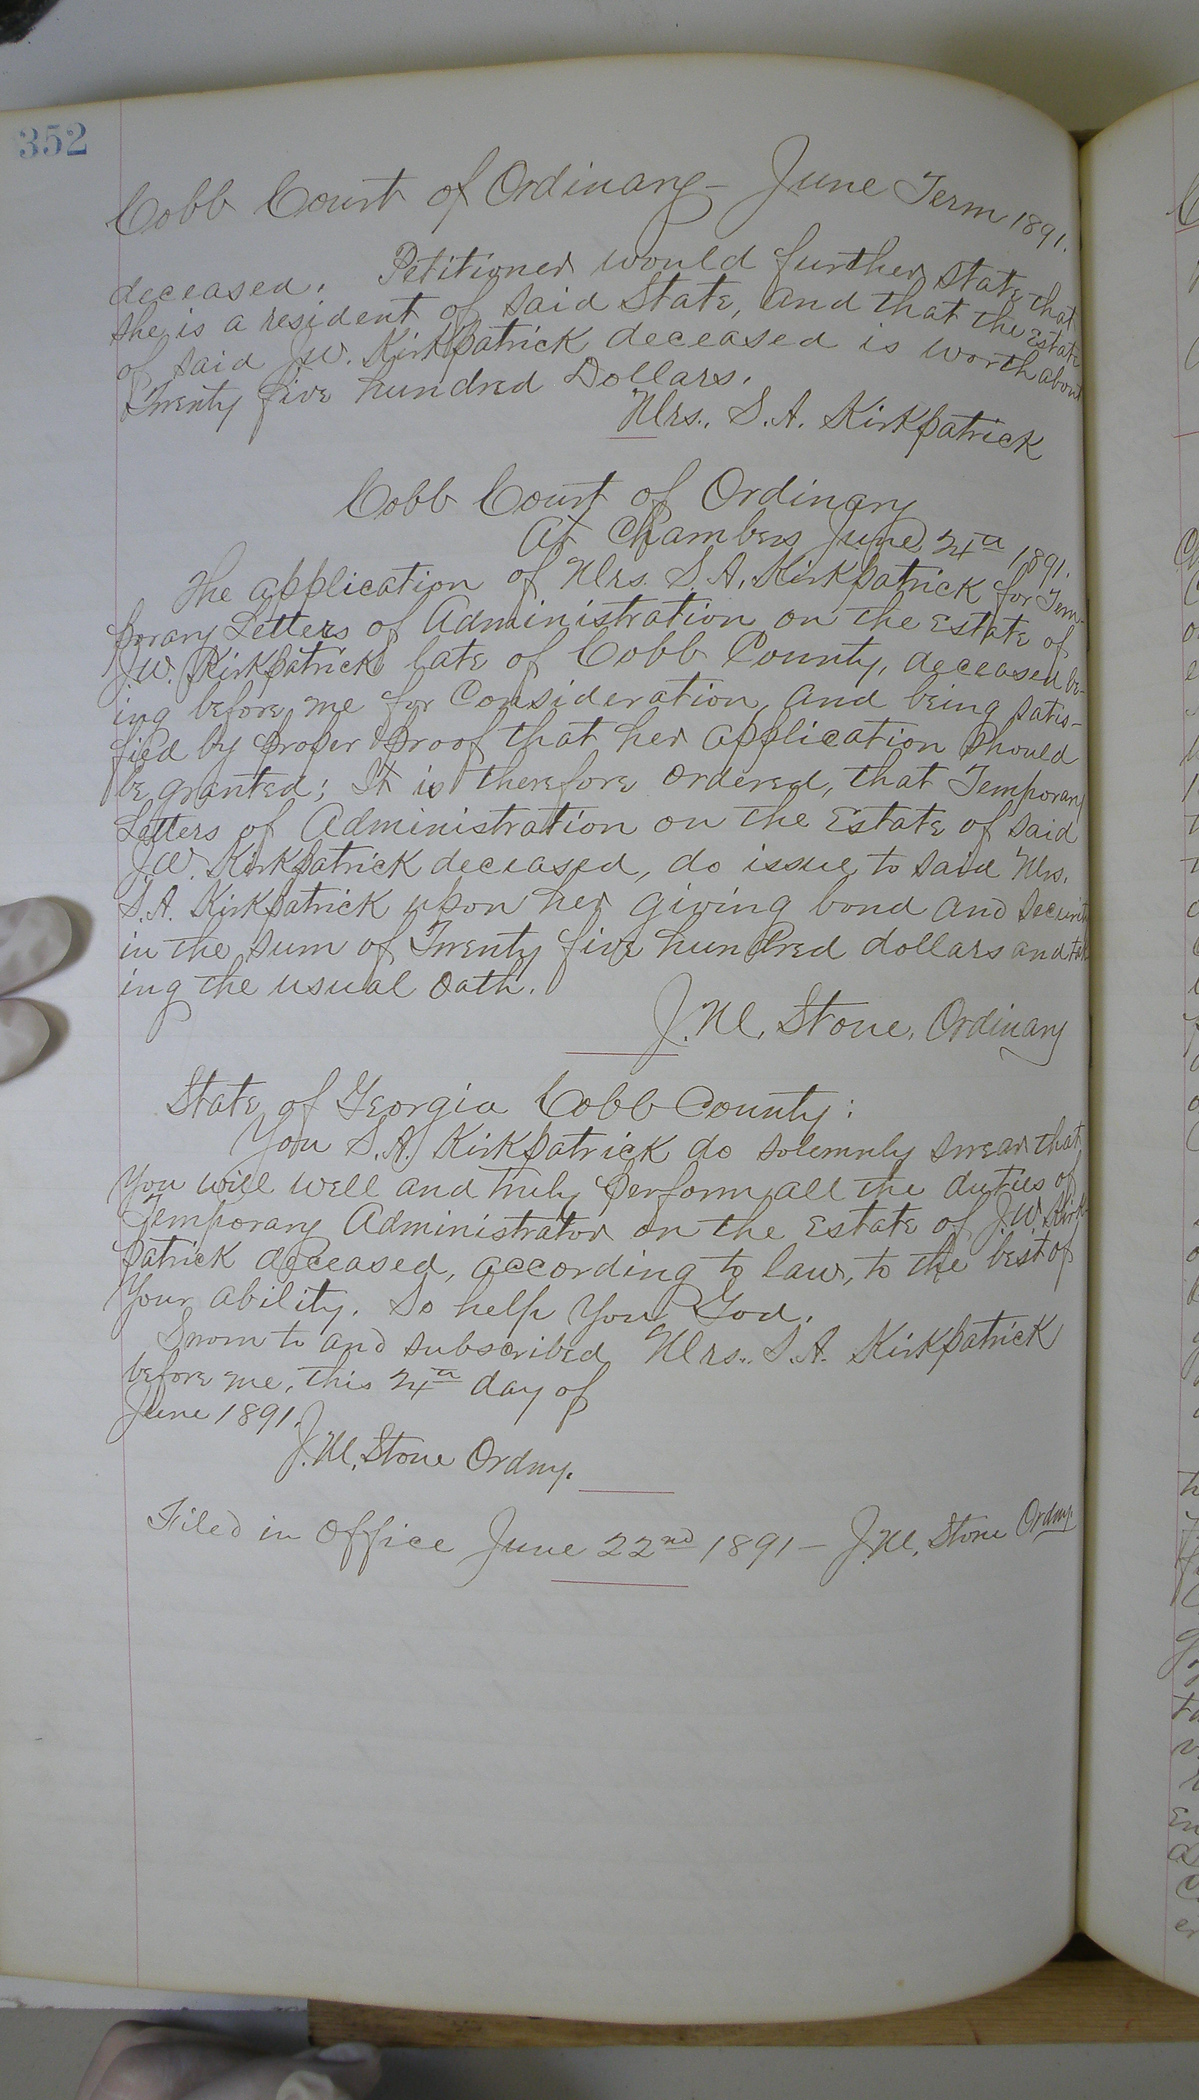 352
Cobb Court of Ordinary - June Term 1891.
deceased. Petitioner would further state that
she is a resident of said State, and that the estate
of said J.W. Kirkpatrick deceased is worth about
Twenty five hundred Dollars.
Mrs. S.A. Kirkpatrick
Cobb Court of Ordinary
At Chambers June 24th 1891.
The application of Mrs. S.A. Kirkpatrick for Tem-
porary Letters of Administration on the Estate of
J.W. Kirkpatrick late of Cobb County, deceased be-
ing before me for Consideration, and being satis-
fied by proper proof that her application should
be granted; It is therefore ordered, that Temporary
Letters of Administration on the Estate of said
J.W. Kirkpatrick deceased, do issue to said Mrs.
S.A. Kirkpatrick upon her giving bond and security
in the sum of Twenty five hundred dollars and tak
ing the usual oath.
J.M. Stone, Ordinary
State of Georgia Cobb County:
You S.A. Kirkpatrick do solemnly swear that
You will well and truly perform all the duties of
Temporary Administrator on the Estate of J.W. Kirk
patrick deceased, according to law, to the best of
Your ability. So help You God.
Sworn to and subscribed Mrs. S.A. Kirkpatrick
before me, this 24th day of
June 1891.
J.M. Stone Ordny.
Filed in Office June 22nd 1891 - J.M. Stone Ordny.